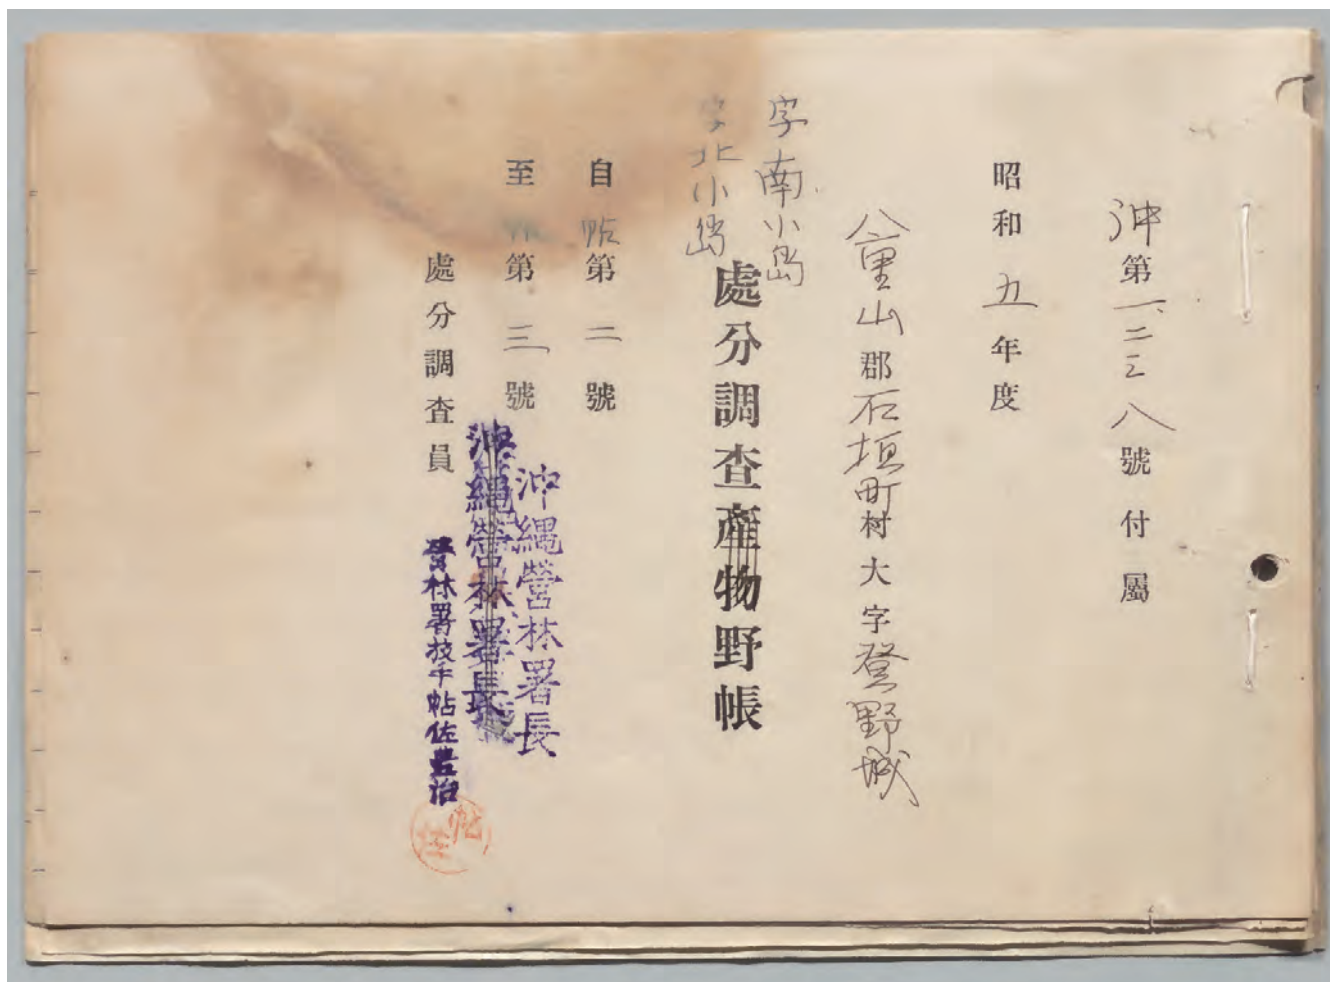 沖第一、二三八號付屬
昭和五年度
八重山郡石垣町村大字登野城
字南小島
字北小島
處分調査産物野帳
自帖第二號
至帖第三號
沖縄營林署長
沖縄營林署長
處分調査員
營林署技手帖佐豊治
帖佐